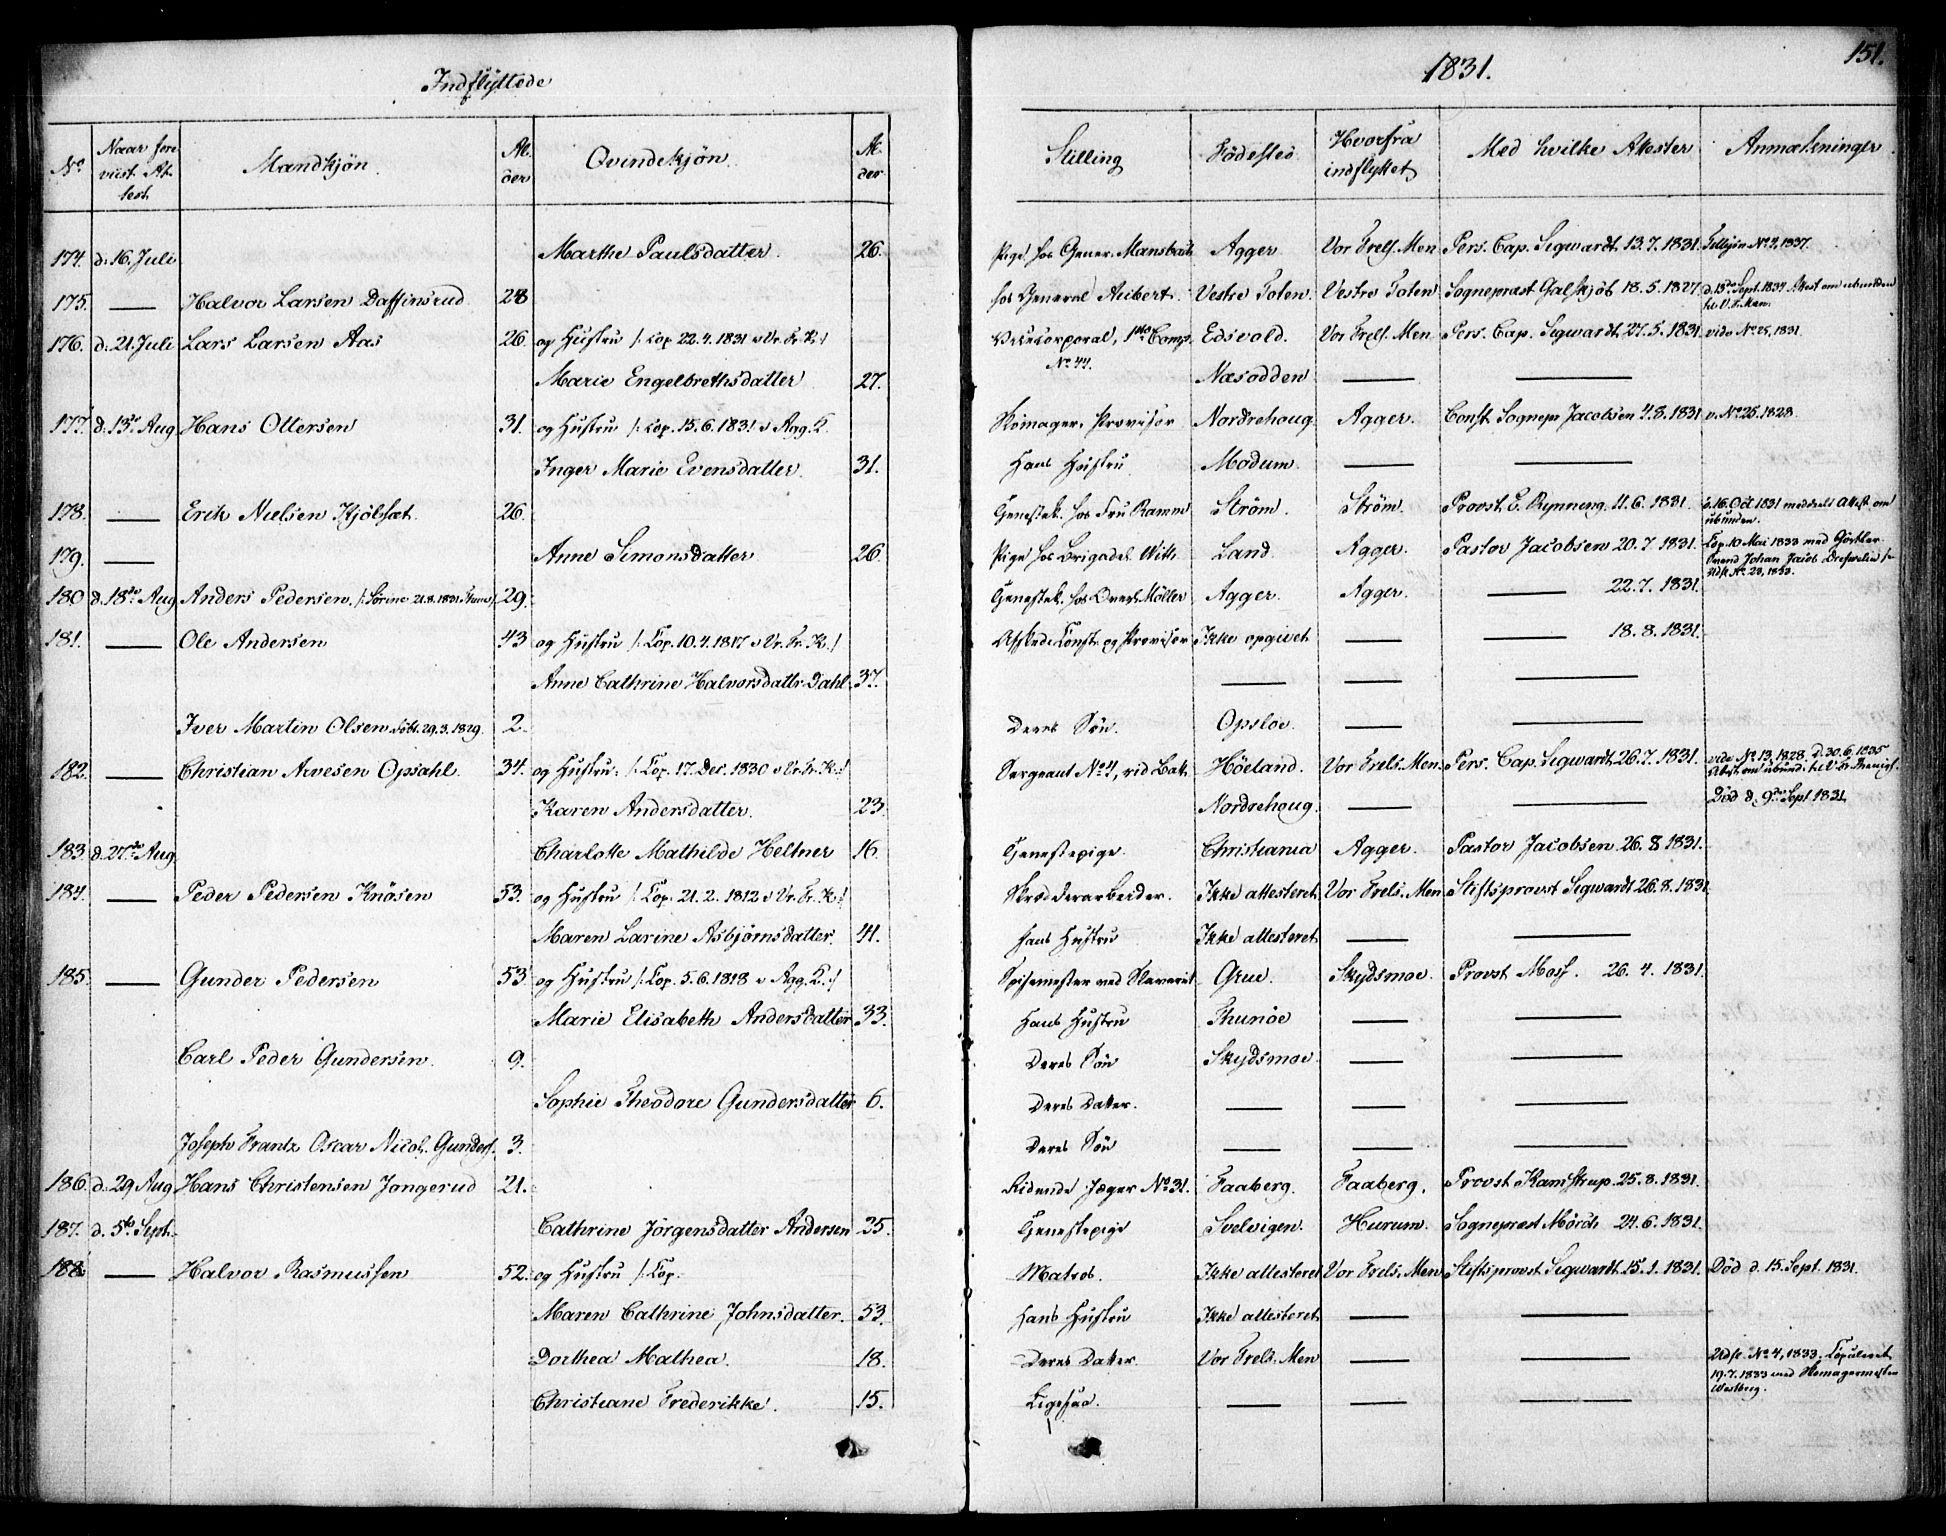 Indflyttede
1831.
151.
No
Naar fore
viist At-
test.
Mandkjøn.
Al-
der
Qvindekjøn.
Al-
der
Stilling
Fødested
Hvorfra
indflyttet
Med hvilke Attester
Anmærkninger
174. d. 16. Juli Marthe Paulsdatter. 26. Pige hos Gener. Mansbach Agger Vor Frels. Men. Pers. Cap. Sigwardt 13.7.1831.
175. — Halvor Larsen Daffinsrud 28 hos General Aubert. Vestre Toten. Vestre Toten Sognepræst Galskjöt 18.5.1827. d. 15de Sept. 1834 Attest om ubunden
176. d. 21. Juli Lars Larsen Aas 26. og Hustru /: Cop. 22.4.1831 i Vr. Fr. K:/ Vicecorporal, 1ste Comp. Edsvold. Vor Frels. Men. Pers. Cap. Sigwardt 27.5.1831. vide No 25, 1831.
No 44.
Marie Engelbrethsdatter 27. Næsodden — —
177. d. 13de Aug Hans Ottersen 31. og Hustru /: Cop. 15.6.1831 i Agg. K. Skomager, Provisor Nordrehoug Agger. Const. Sognepr. Jacobsen 4.8.1831 v. No 25. 1828.
Inger Marie Evensdatter. 31. Hans Hustru Modum. — —
178. — Erik Nielsen Kjölsæt. 26. Tjenestek. hos Fru Ramm Ström. Ström. Provst E. Rynning. 11.6.1831. d. 16. Oct 1831 meddeelt Attest om
ubunden.
179. — Anne Simonsdatter 26. Pige hos Brigadel. With Land. Agger. Pastor Jacobsen 20.7.1831. Cop. 10 Mai 1833 med Gjörtler-
svend Johan Jacob
Udfl. No 23, 1833.
180 d. 18de Aug. Anders Pedersen. 29. Tjenestek. hos Overl. Möller Agger. Agger. — 22.7.1831.
181. — Ole Andersen 43 og Hustru /: Cop. 10.4.1817 i Vr. Fr. K./ Afsk. Const. og Provisor Ikke opgivet — — 18.8.1831.
Anne Cathrine Halvorsdattr. Dahl. 37. — — —
Iver Martin Olsen döbt 29.3.1829. 2. Deres Sön Opsloe. — —
182. — Christian Arvesen Opsahl. 34. og Hustru. /: Cop. 17. Dec. 1830 i Vr. Fr. K:/ Sergeant No 4, rid Bat. Höeland. Vor Frels. Men. Pers. Cap. Sigwardt 26.7.1831. vide No 13, 1828. D. 30.6.1835
Karen Andersdatter. 23. Nordrehoug. — — Död d. 9de Sept 1831.
183. d. 27de Aug. Charlotte Mathilde Heltner 16. Tjenestepige. Christiania Agger. Pastor Jacobsen. 26.8 1831.
184. — Peder Pedersen Knösen 53. og Hustru /: Cop. 21.2.1812 i Vr. Fr. K:/ Skrædderarbeider. Ikke attesteret Vor Frels. Men Stiftsprovst Sigwardt 26.8.1831
Maren Larine Asbjörnsdatter. 41. Hans Hustru Ikke attesteret — —
185. — Gunder Pedersen 53 og Hustru /: Cop. 5.6.1818 i Agg. K:/ Spisemester ved Slaveriet Grue. Skydsmoe. Provst Moss. 26.4.1831.
Marie Elisabeth Andersdatter 33. Hans Hustru Thunöe — —
Carl Peder Gundersen. 9. Deres Sön Skydsmoe. — —
Sophie Theodore Gundersdatter 6. Deres Datter. — — —
Joseph Frantz Oscar Nicol. Gunders. 3. Deres Sön — — —
186. d. 29 Aug. Hans Christensen Jongerud 21. Ridende Jæger No 31. Faaberg. Faaberg. Provst Kamstrup. 25.8.1831.
187. d. 5te Septb. Cathrine Jörgensdatter Andersen 35. Tjenestepige Svelvigen. Hurum. Sognepræst Mörch 24.6.1831.
188. — Halvor Rasmussen 52. og Hustru /: Cop. Matros. Ikke attesteret Vor Frels. Men Stiftsprovst Sigwardt 15.1.1831. Död d. 15. Sept. 1831.
Maren Cathrine Johnsdatter. 53. Hans Hustru Ikke attesteret — —
Dorthea Mathea. 18. Deres Datter. Vor Frels. Men — — Udfl. No 4, 1833. Copuleret
19.7.1833 med Skomagermester
Westberg.
Christiane Frederikke. 15. Ligesaa. — — —